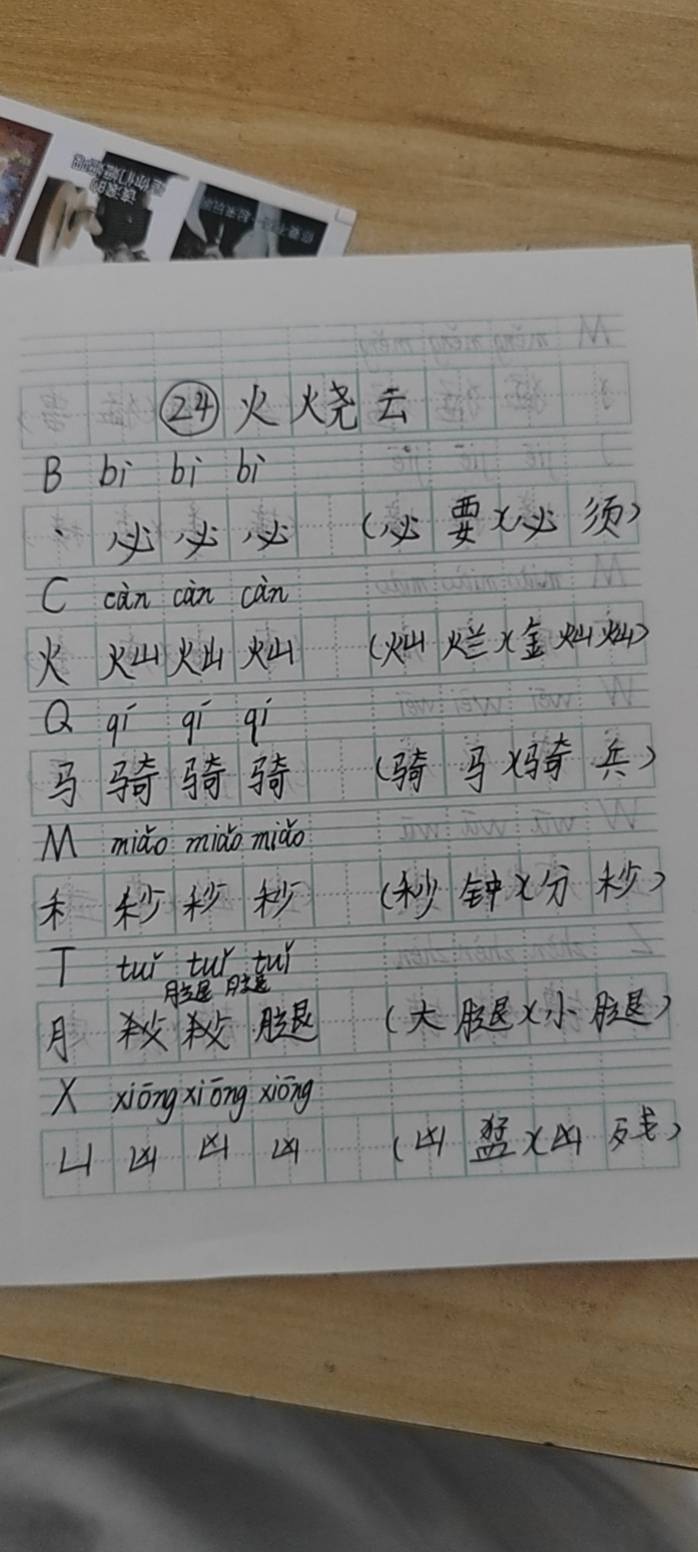 ㉔ 火烧云
B bì bì bì
丶 必 必 必 (必要)(必须)
C càn càn càn
火 灿 灿 灿 (灿烂)(金灿灿)
Q qí qí qí
马 骑 骑 骑 (骑马)(骑兵)
M miǎo miǎo miǎo
禾 秒 秒 秒 (秒钟)(分秒)
T tuǐ tuǐ tuǐ
腿 腿
月 腿 (大腿)(小腿)
X xiōng xiōng xiōng
凵 凶 凶 凶 (凶猛)(凶残)